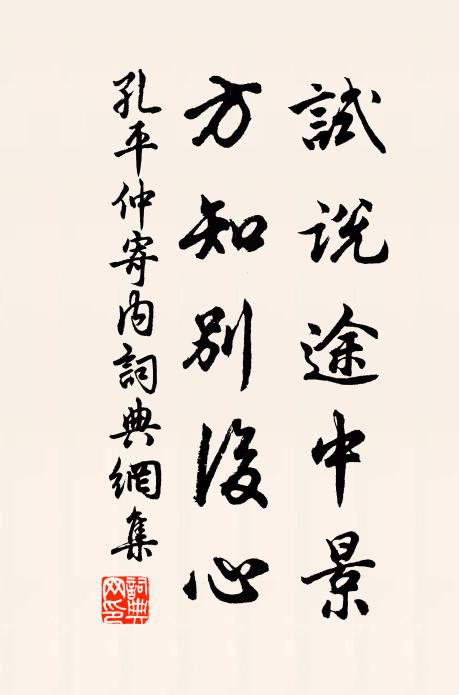 試説途中景
方知別後心
孔平仲寄内詞典網集
詞典網印